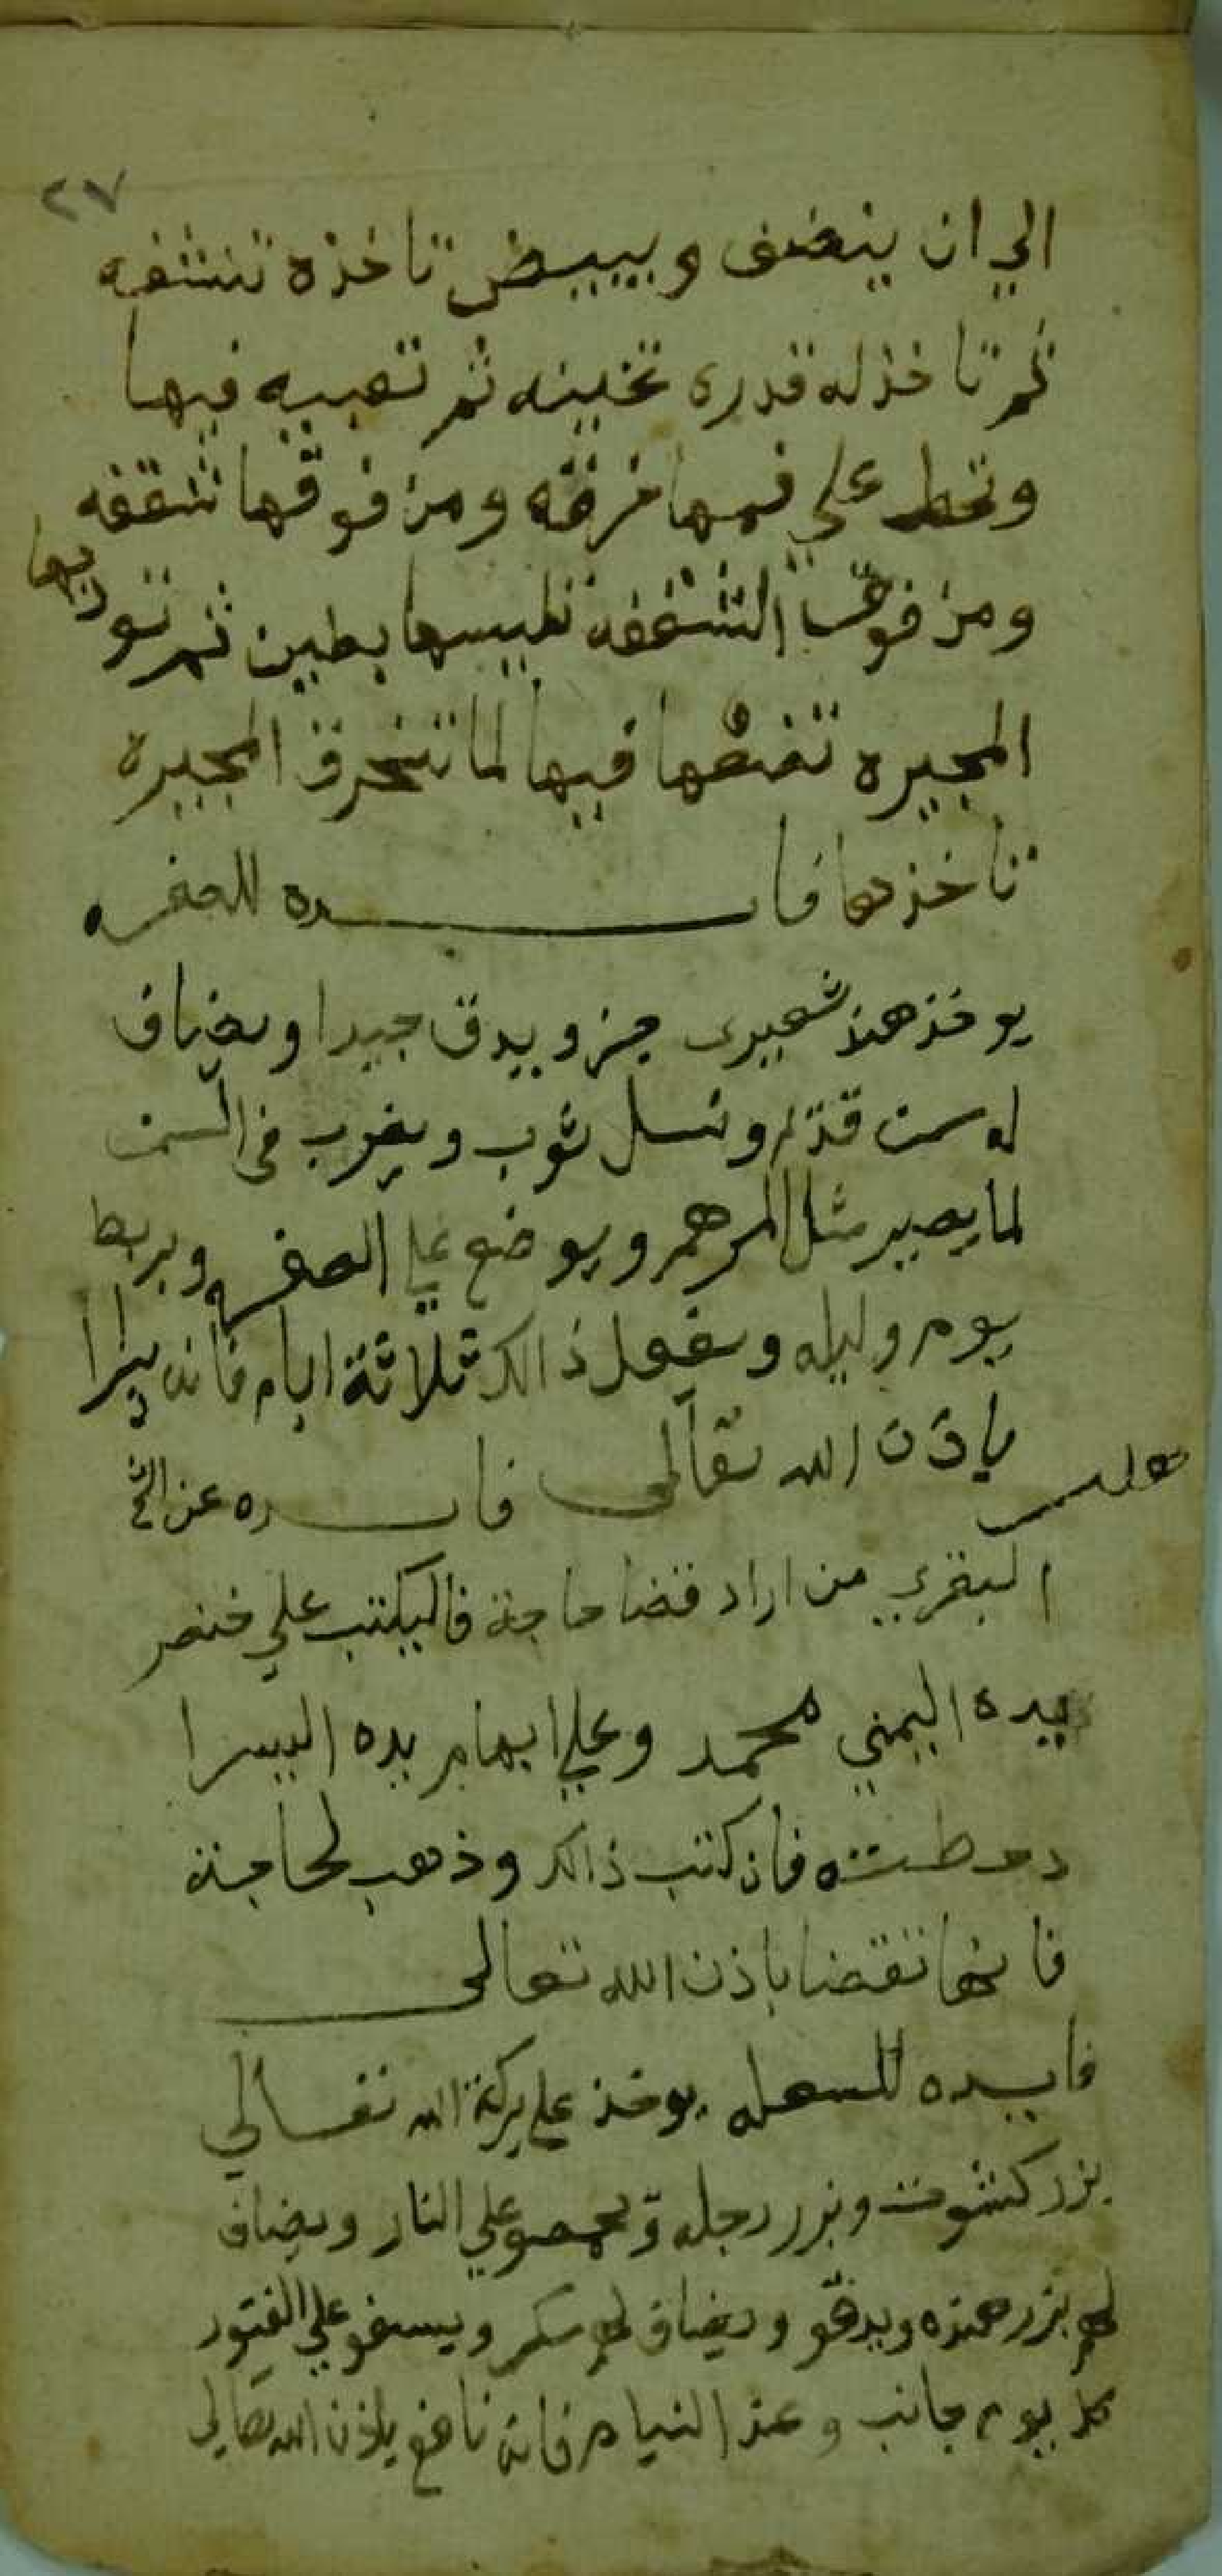 ٢٧
الي ان ينضف ويبيض تاخذه تنشفه
ثم تاخذ له قدره تخينه ثم تعبيه فيها
وتحط علي فمها خرقه ومن فوقها شقفه
ومن فوق الشقفه تليسها بطين ثم تو بها
المجيره تضعها فيها لما تنحرق المجيره
تاخذها فايده للصفره
يوخذ هند شعيري جز ويدق جيدا ويضاف
له سمن قدر ونسل ثوب ويضرب في السمن
لما يصير مثل المرهم ويوضع علي الصفره ويربط
يوم وليله ويفعل ذالك ثلاثة ايام فانه يبرا
باذن الله تعالى فايده عن
البقري من اراد قضا حاجة فاليكتب علي خنصر
يده اليمني محمد وعلي ابهام يده اليسرا
فان كتب ذالك وذهب لحاجته
فانها تقضا باذن الله تعالى
فايده للسعله يوخذ علي بركة الله تعالي
بزر كشوت وبزر رجله ويحمصو علي النار ويضاف
لهم بزر ويدقو ويضاف لهم سكر ويسفو علي الفتور
كل يوم جانب وعند النيام فانه نافع باذن الله تعالي